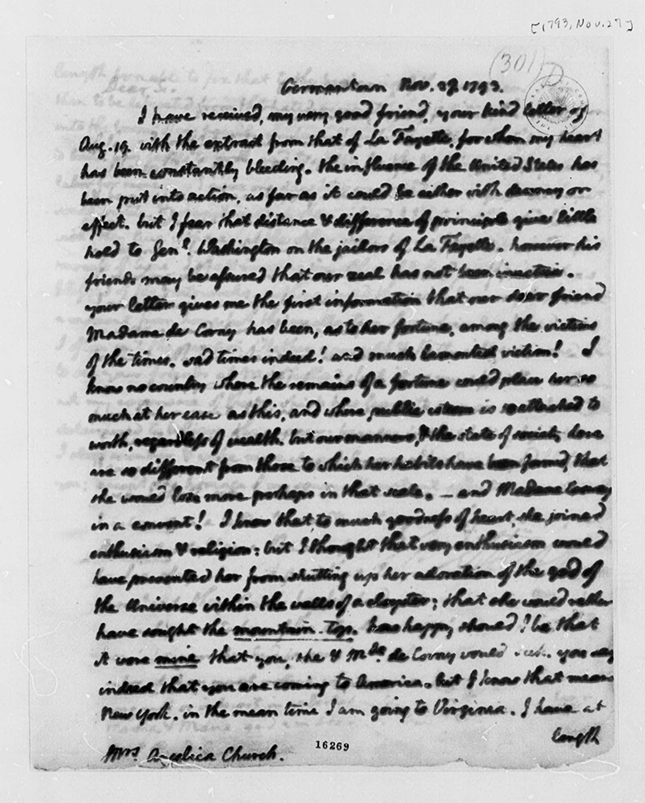 [1793, Nov. 27.]
(301)
Germantown Nov. 27. 1793.
I have received, my very good friend, your kind letter of
Aug. 19. with the extract from that of La Fayette, for whom my heart
has been constantly bleeding. the influence of the United States has
been put into action, as far as it could be either with decency or
effect. but I fear that distance & difference of principle give little
hold to Genl. Washington on the jailors of La Fayette. however his
friends may be assured that our zeal has not been inactive.
your letter gives me the first information that our dear friend
Madame de Corny has been, as to her fortune, among the victims
of the times. sad times indeed! and much lamented victim! I
know no country where the remains of a fortune could place her so
much at her ease as this, and where public esteem is so attached to
worth, regardless of wealth. but our manners, & the state of society here
are so different from those to which her habits have been formed, that
she would lose more perhaps in that scale. — and Madame Cosway
in a convent! I know that to much goodness of heart, she joined
enthusiasm & religion: but I thought that very enthusiasm would
have prevented her from shutting up her adoration of the god of
the Universe within the walls of a cloyster; that she would rather
have sought the mountain-top. how happy should I be that
it were mine that you, she & Mde. de Corny would seek. you say
indeed that you are coming to America. but I know that means
New York. in the mean time I am going to Virginia. I have at
length
Mrs. Angelica Church.
16269